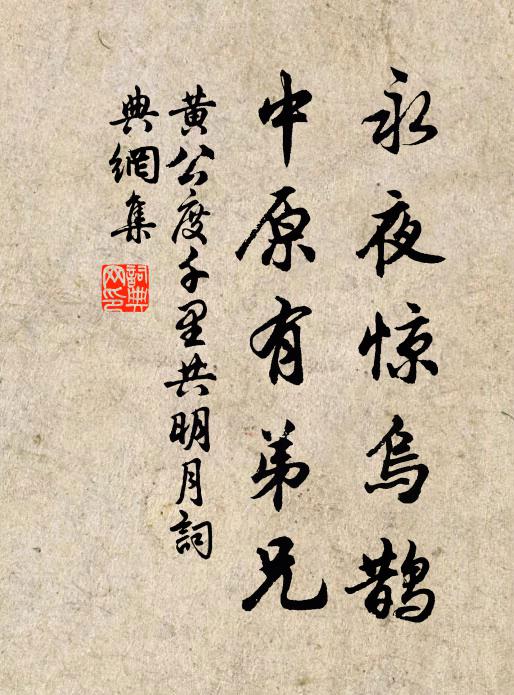 永夜惊乌鹊
中原有弟兄
黄公度千里共明月詞
典網集
詞典网印